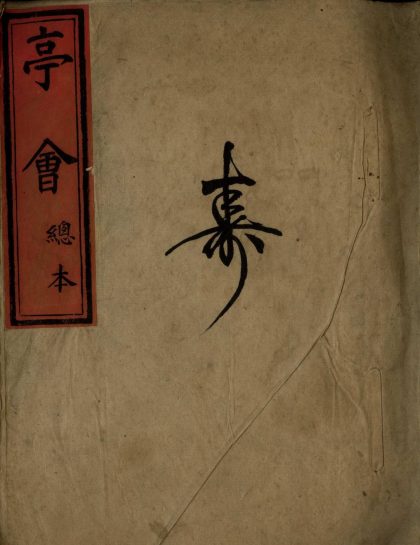 亭會總本